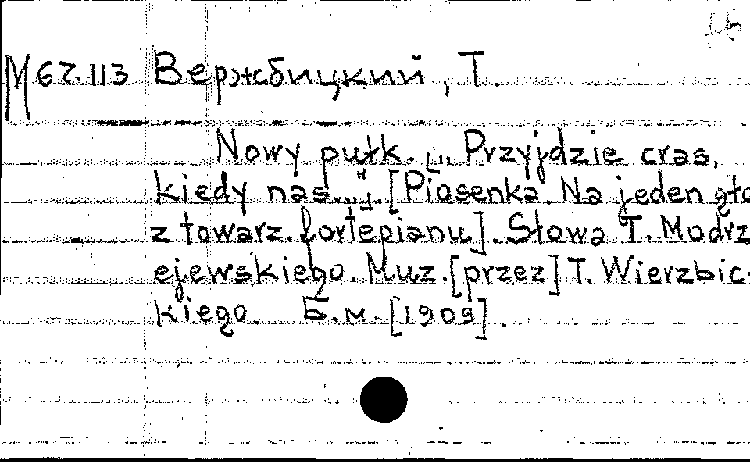 М 67.113 Вержбицкий, Т.
Nowy pułk. „Przyjdzie czas,
kiedy nas..." [Piosenka. Na jeden gło
z towarz. fortepianu]. Słowa T. Modrz
ejewskiego. Muz. [przez] T. Wierzbic-
kiego Б.м. [1909].